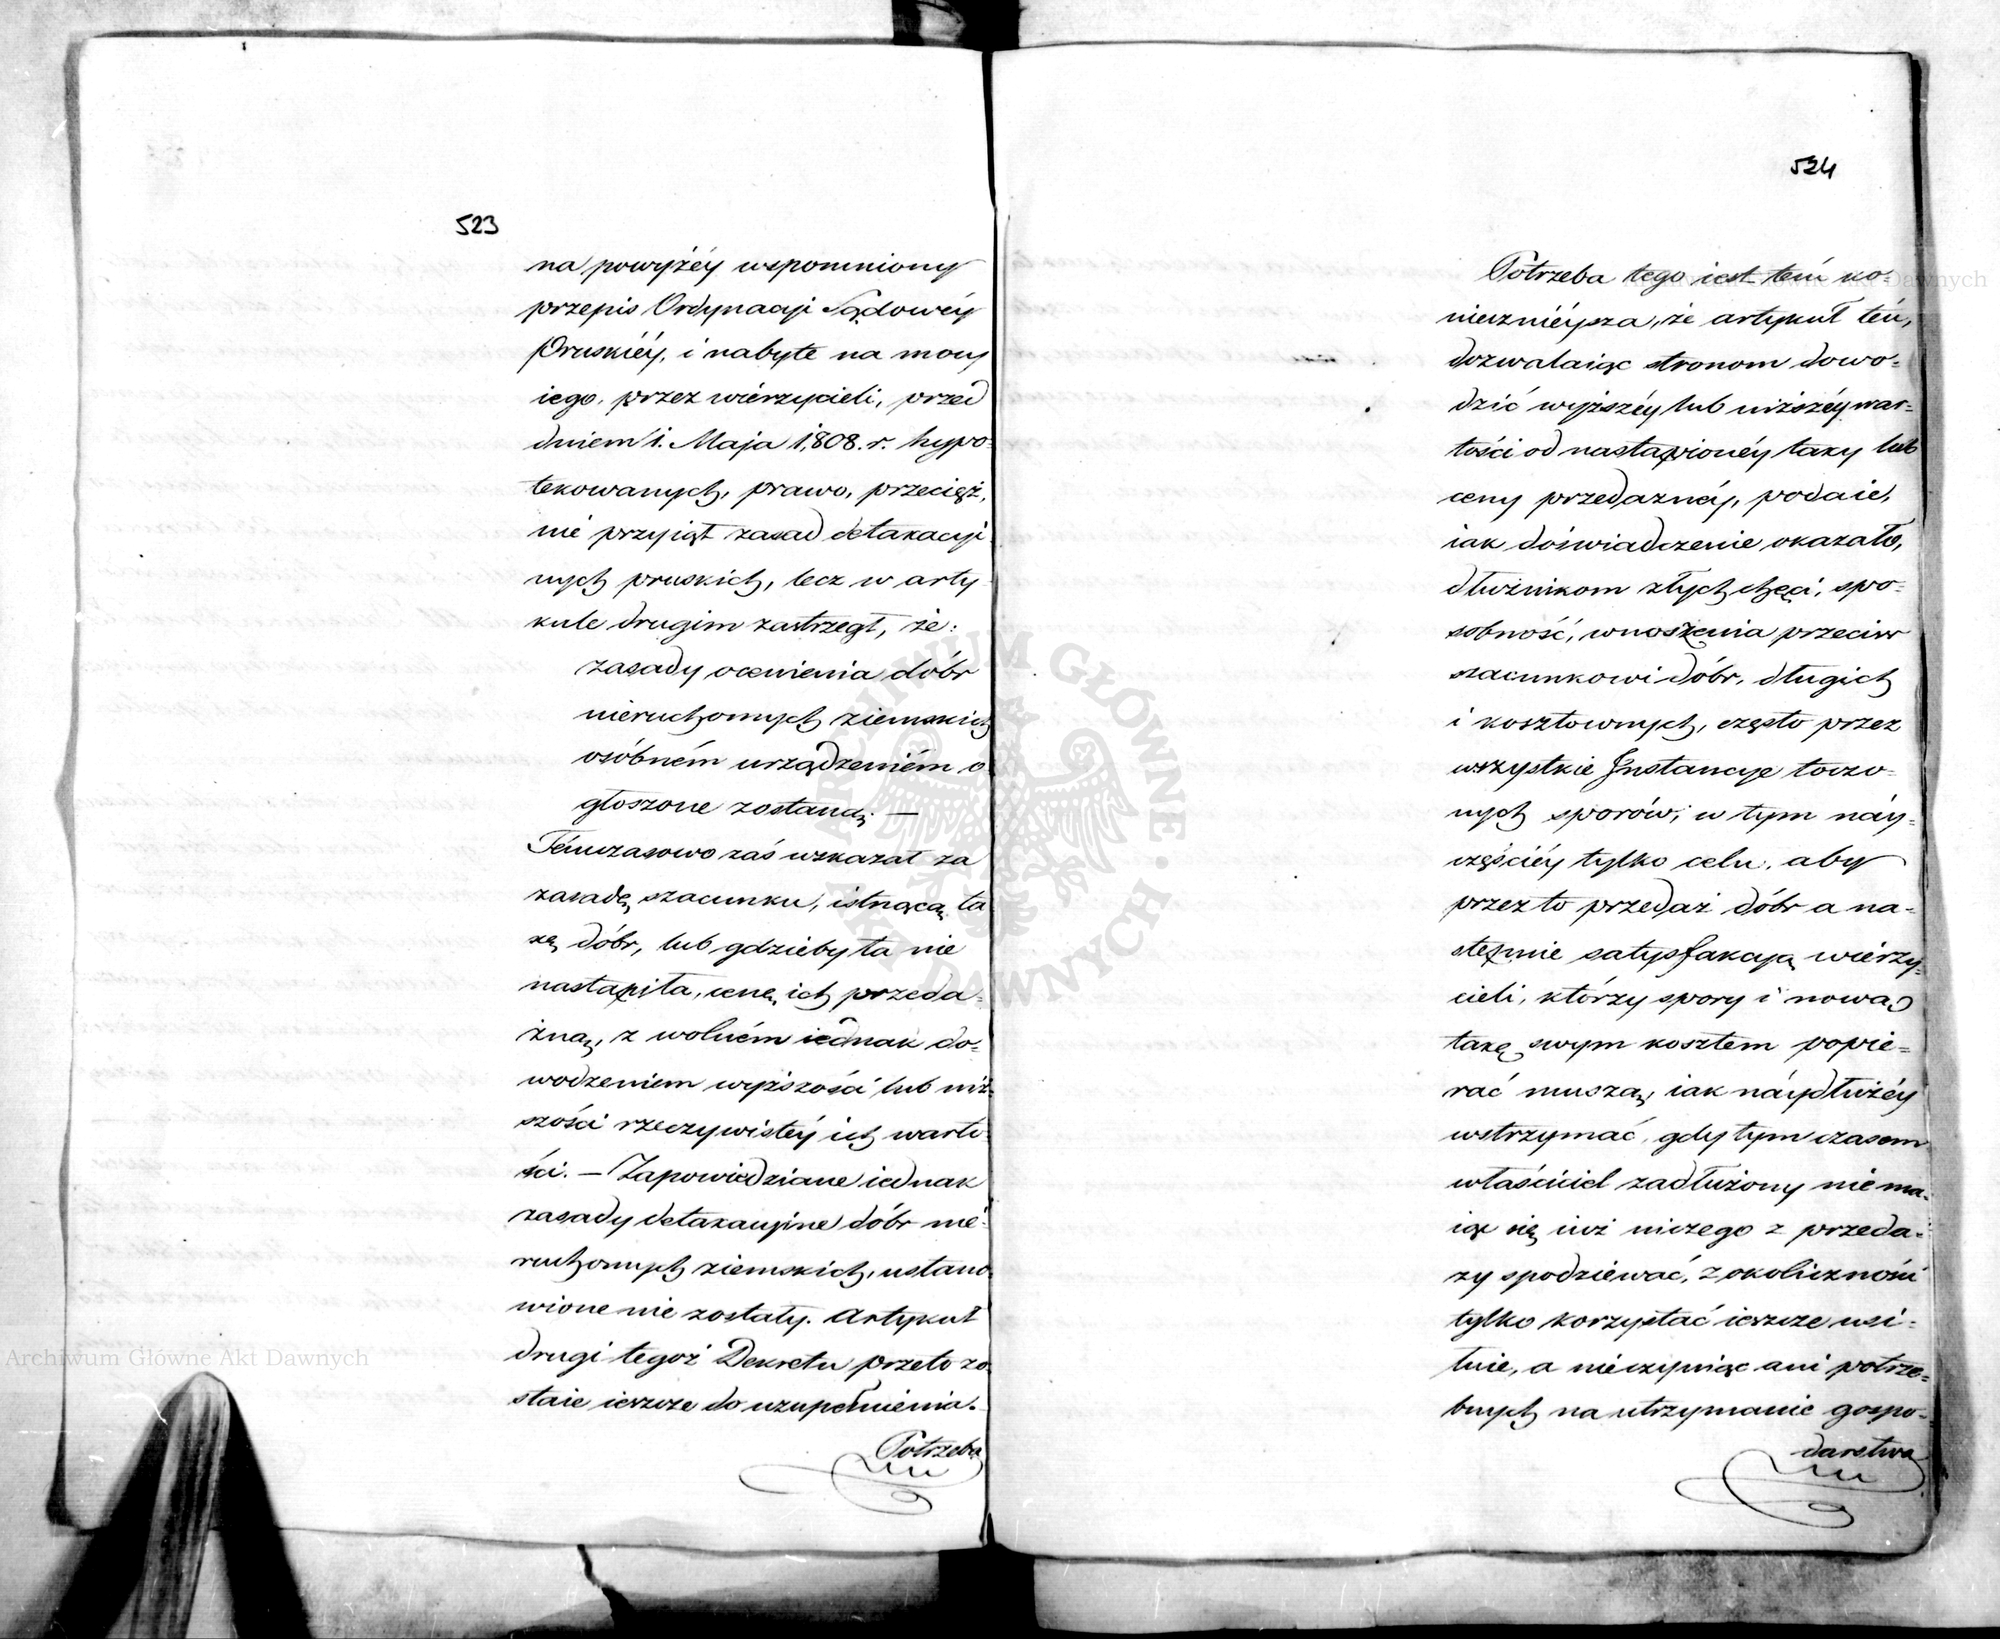 523
na powyżéy wspomniony
przepis Ordynacyi Sądowéy
Pruskiéy, i nabyte na mocy
iego, przez wierzycieli, przed
dniem 1. Maja 1,808. r. hypo-
tekowanych, prawo, przecięż,
nie przyiął zasad detaxacyi
nych pruskich, lecz w arty-
kule drugim zastrzegł, że:
zasady ocenienia dóbr
nieruchomych ziemskich
osóbném urządzeniém o-
głoszone zostaną. —
Témczasowo zaś wskazał za
zasadę szacunku, istnącą ta
xę dóbr, lub gdzieby ta nie
nastąpiła, cenę ich przeda-
żną, z wolném iednak do-
wodzeniem wyższości lub niż-
szości rzeczywistéy ich warto-
ści. — Zapowiedziane iednak
zasady detaxacyine dóbr nie-
ruchomych ziemskich, ustano-
wione nie zostały. Artykuł
drugi tegoż Dekretu przeto zo-
staie ieszcze do uzupełnienia.
Potrzeba
524
Potrzeba tego iest tém ko-
niecznieysza, że artykuł tén,
dozwalaiąc stronom dowo-
dzić wyższéy lub niższéy war-
tości od nastąpionéy taxy lub
ceny przedażnéy, podaie,
iak doświadczenie okazało,
dłużnikom złych chęci, spo-
sobność, wnoszenia przeciw
szacunkowi dóbr, długich
i kosztownych, często przez
wszystkie Instancye toczo-
nych sporów; w tym náy-
częściéy tylko celu, aby
przez to przedaż dóbr a na-
stępnie satysfakcyą wierzy-
cieli, którzy spory i nową
taxę swym kosztem popie-
rać muszą, iak náydłużéy
wstrzymać, gdy tym czasem
właściciel zadłużony nie ma-
iąc się iuż niczego z przeda-
ży spodziewać, z okoliczności
tylko korzystać ieszcze usi-
łuie, a nieczyniąc ani potrze-
bnych na utrzymanie gospo-
darstwa
Archiwum Główne Akt Dawnych
Archiwum Główne Akt Dawnych
ARCHIWUM GŁÓWNE · AKT DAWNYCH ·